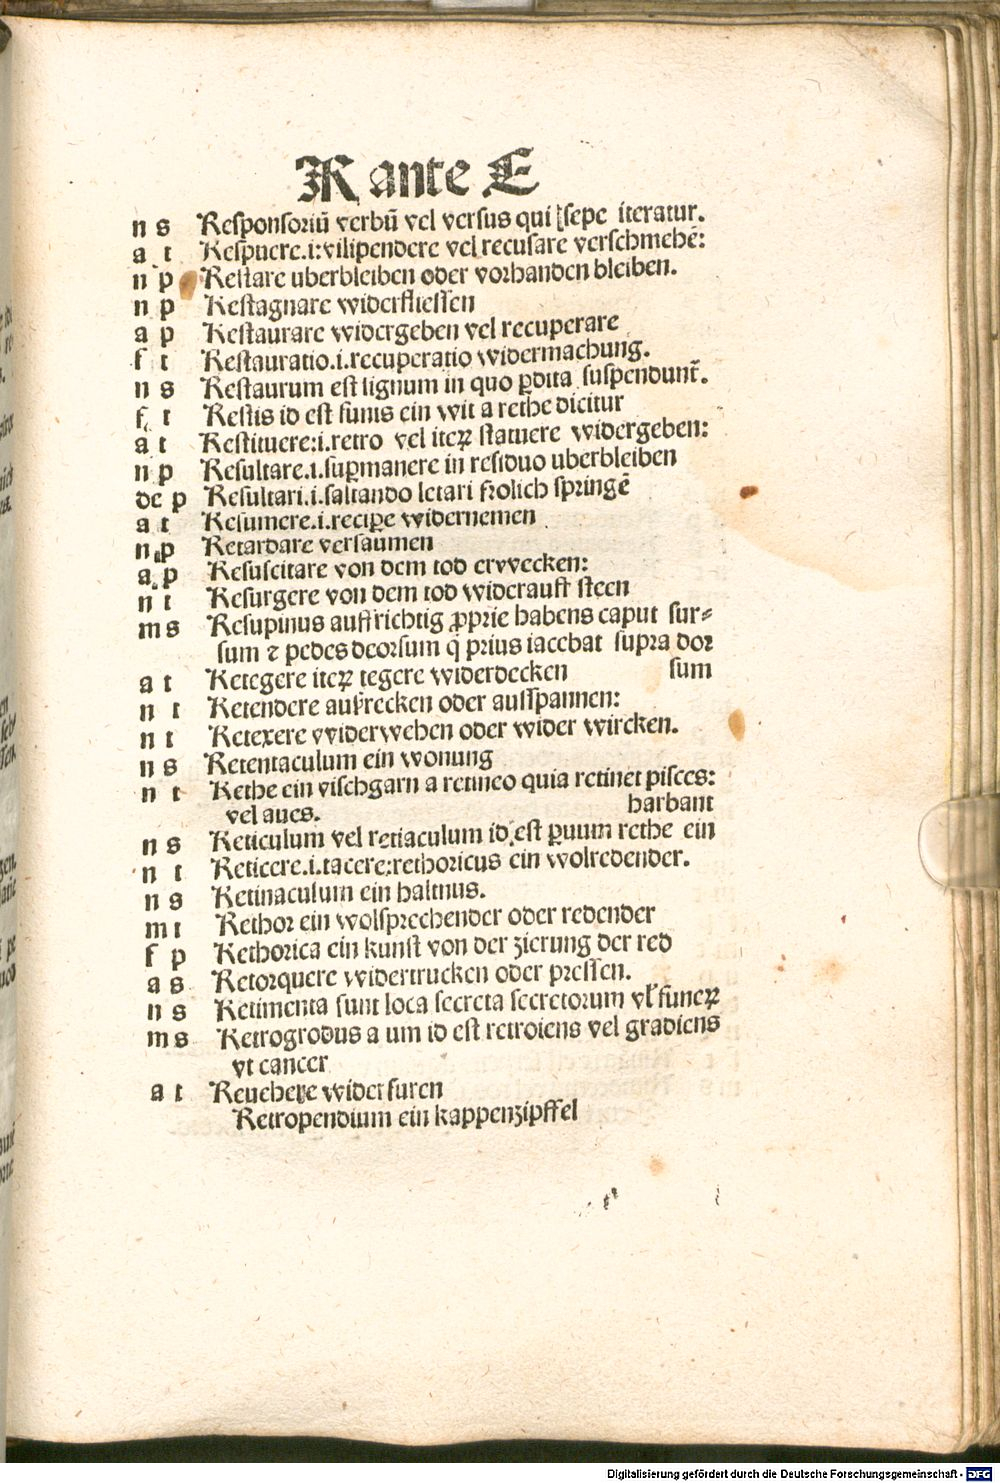 R ante E
n s Responsoriū verbū vel versus qui sepe iteratur.
a t Respuere.i:vilipendere vel recusare verschmehē:
n p Restare uberbleiben oder vorhanden bleiben.
n p Restagnare widerfliessen
a p Restaurare widergeben vel recuperare
f t Restauratio.i.recuperatio widermachung.
n s Restaurum est lignum in quo ꝑdita suspendunt̄.
f t Restis id est funis ein wit a rethe dicitur
a t Restituere:i.retro vel iteꝝ statuere widergeben:
n p Resultare.i.suꝑmanere in residuo uberbleiben
de p Resultari.i.saltando letari frolich springē
a t Resumere.i.reciꝑe widernemen
n p Retardare versaumen
a p Resuscitare von dem tod ervvecken:
n t Resurgere von dem tod widerauff steen
m s Resupinus auffrichtig ꝓprie habens caput sur⸗
sum ⁊ pedes deorsum q̇ prius iacebat supra dor
a t Retegere iteꝝ tegere widerdecken sum
n t Retendere aufrecken oder ausspannen:
n t Retexere vviderweben oder wider wircken.
n s Retentaculum ein wonung
n t Rethe ein vischgarn a retineo quia retinet pisces:
vel aues. harbant
n s Reticulum vel retiaculum id est ꝑuum rethe ein
n t Reticere.i.tacere:rethoricus ein wolredender.
n s Retinaculum ein haltnus.
m t Rethor ein wolsprechender oder redender
f p Rethorica ein kunst von der zierung der red
a s Retorquere widertrucken oder pressen.
n s Retimenta sunt loca secreta secretorum vl̓ funeꝝ
m s Retrogrodus a um id est retroiens vel gradiens
vt cancer
a t Reuehere wider furen
Retropendium ein kappenzipffel
Digitalisierung gefördert durch die Deutsche Forschungsgemeinschaft - DFG